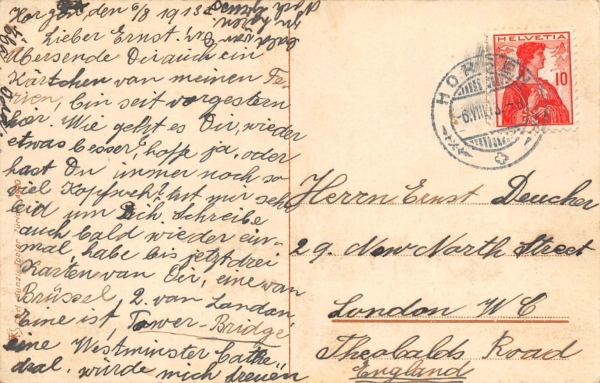 Horgen, den 6/8 1913.
Lieber Ernst.
übersende Dir auch ein
Kärtchen van meinen Fe-
rien, bin seit vorgestern
hier. Wie geht es Dir, wieder
etwas besser, hoffe ja, oder
hast Du immer noch so
viel Kopfweh? tut mir sehr
leid um Dich. Schreibe
auch bald wieder ein-
mal, habe bis jetzt drei
Karten van Dir, eine van
Brüssel, 2. van London
Eine ist, Tower-Bridge
eine Westminster Cathe-
dral. würde mich freuen
HELVETIA
10
HORGEN
6.VIII.13
Herrn Ernst Deucher
29. New North Street
London W C
Theobalds Road
England